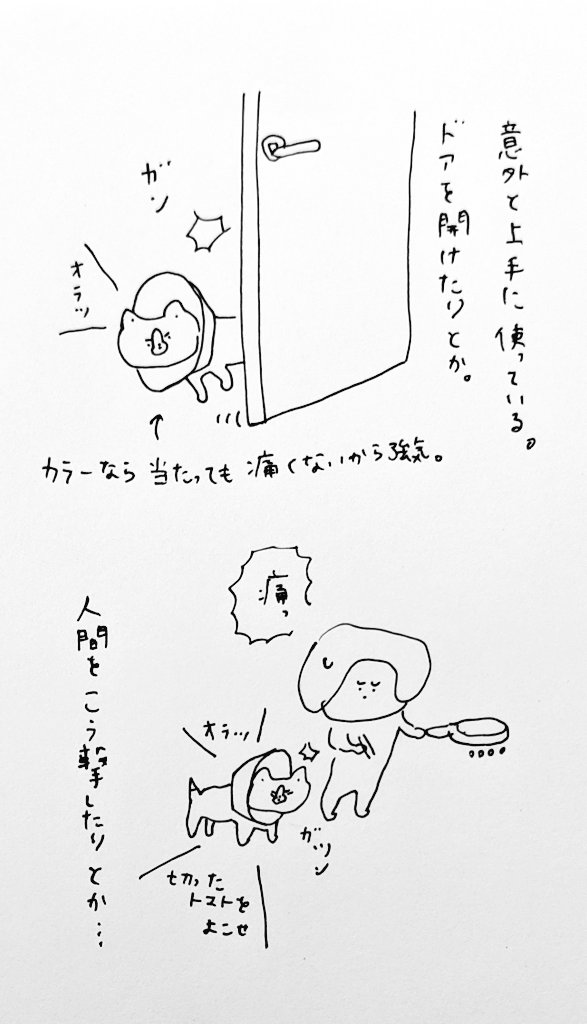 意外と上手に使っている。
ドアを開けたりとか。
ガン
オラッ
カラーなら当たっても痛くないから強気。
痛っ
人間をこう撃したりとか…
オラッ
ガツン
切った
トマトを
よこせ